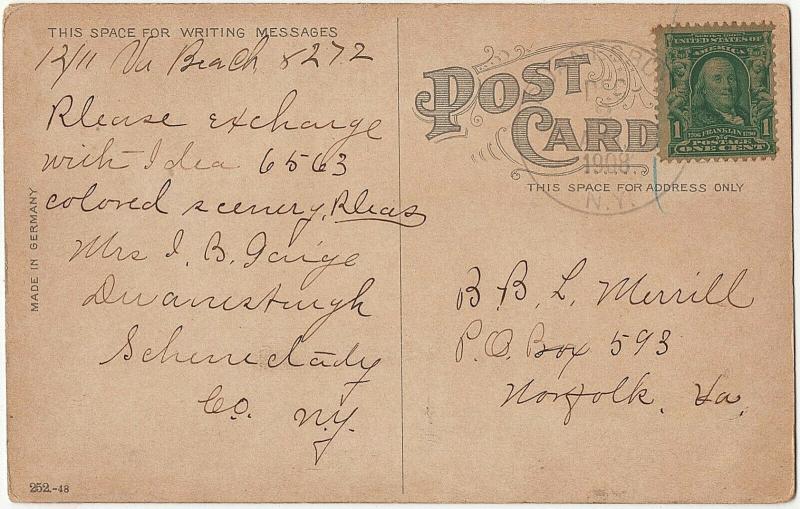 THIS SPACE FOR WRITING MESSAGES
12/11 Va Beach 8272
Please exchange
with Idea 6563
colored scenery, Pleas
Mrs I. B. Gaige
Duanesburgh
Schenectady
Co. N.Y.
MADE IN GERMANY
252.-48
POST
CARD
THIS SPACE FOR ADDRESS ONLY
1908
N.Y.
SERIES 1902
UNITED STATES OF
AMERICA
1706 FRANKLIN 1790
1 1
POSTAGE
ONE CENT
B. B. L. Merrill
P.O. Box 593
Norfolk. Va.